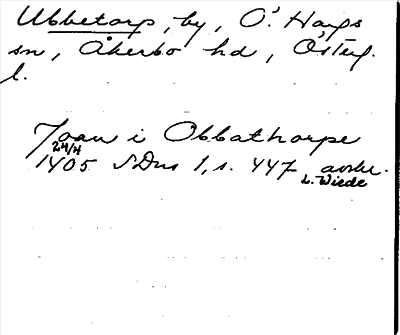 Ubbetorp, by, Ö. Hargs
sn, Åkerbo hd, Österg.
l.
Joan i Obbathorpe
24/4
1405 SDns 1, s. 447 avskr.
L. Wiede